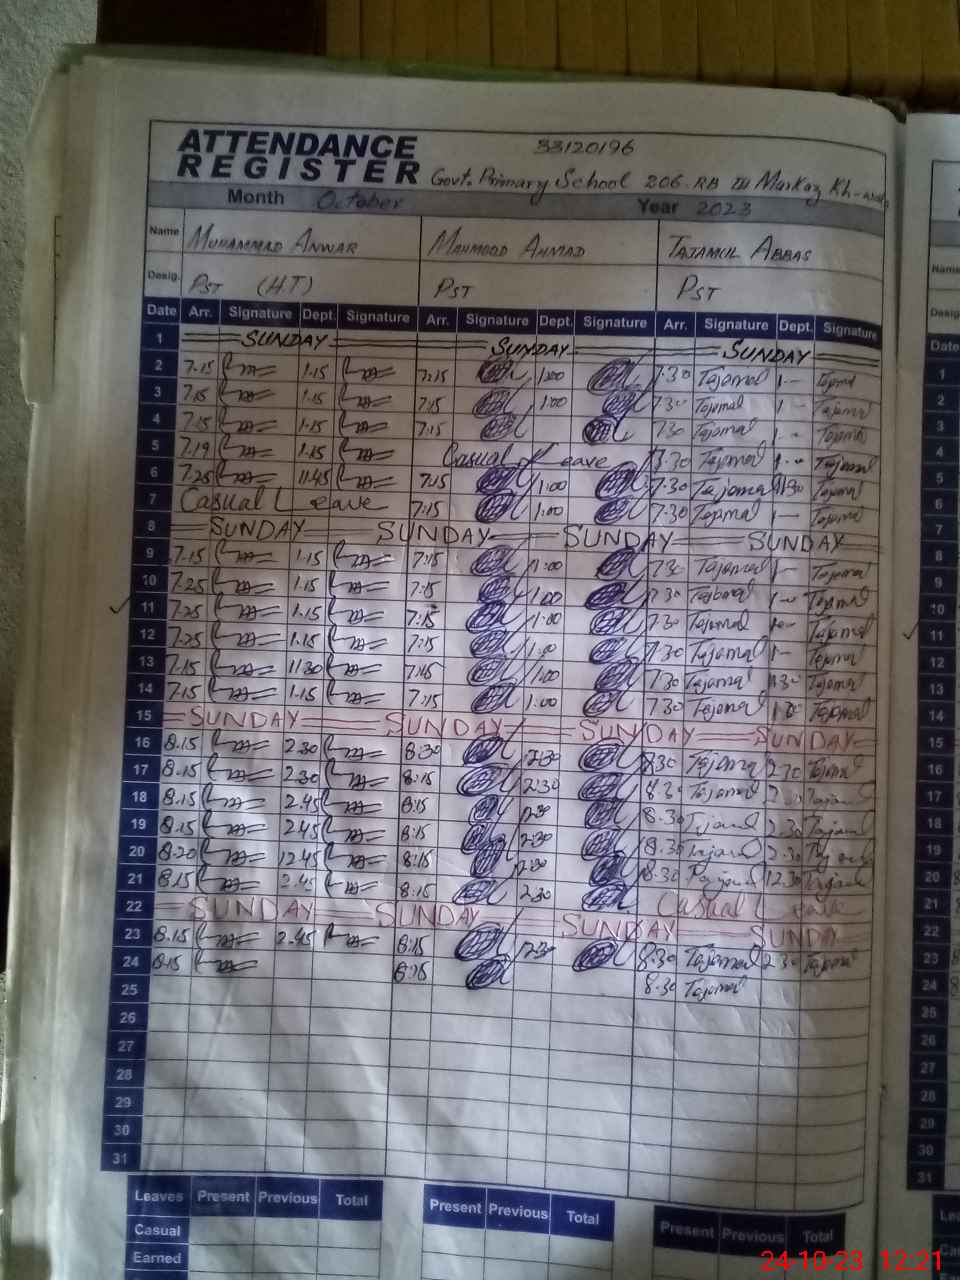 ATTENDANCE
REGISTER
33120196
Govt. Primary School 206 RB III Markaz Kh-
Month October Year 2023
Name MUHAMMAD ANWAR MAHMOOD AHMAD TAJAMUL ABBAS
Desig. PST (H.T) PST PST
Date Arr. Signature Dept. Signature Arr. Signature Dept. Signature Arr. Signature Dept. Signature
1 SUNDAY SUNDAY SUNDAY
2 7.15 1.15 7:15 1:00 7.30 Tajamal 1--
3 7.15 1.15 7:15 1:00 7.30 Tajamal 1-- Tajamal
4 7.25 1.15 7:15 7.30 Tajamal 1-- Tajamal
5 7.19 1.15 Casual Leave 7.30 Tajamal 1-- Tajamal
6 7.25 11.45 7:15 1:00 7.30 Tajamal 11.30 Tajamal
7 Casual Leave 7:15 1:00 7.30 Tajamal 1-- Tajamal
8 SUNDAY SUNDAY SUNDAY SUNDAY
9 7.15 1.15 7:15 1:00 7.30 Tajamal 1-- Tajamal
10 7.25 1.15 7:15 1:00 7.30 Tajamal 1-- Tajamal
11 7.25 1.15 7:15 1:00 7.30 Tajamal Tajamal
12 7.25 1.15 7:15 1:00 7.30 Tajamal 1-- Tajamal
13 7.15 11.30 7:15 1:00 7.30 Tajamal 11.30 Tajamal
14 7.15 1.15 7:15 1:00 7.30 Tajamal Tajamal
15 SUNDAY SUNDAY SUNDAY SUNDAY
16 8.15 2.30 8:30 2:30 8.30 Tajamal 2.30 Tajamal
17 8.15 2.30 8:15 2:30 8.30 Tajamal Tajamal
18 8.15 2.45 8:15 2:30 8.30 Tajamal 2.30 Tajamal
19 8.15 2.45 8:15 2:30 8.30 Tajamal 2.30 Tajamal
20 8.20 12.45 8:15 8.30 Tajamal 12.30 Tajamal
21 8.15 2.45 8:15 2:30 Casual Leave
22 SUNDAY SUNDAY SUNDAY SUNDAY
23 8.15 2.45 8:15 2:30 8:30 Tajamal 2.30 Tajamal
24 8.15 8:15 8.30 Tajamal
25
26
27
28
29
30
31
Leaves Present Previous Total Present Previous Total Present Previous Total
Casual
Earned
Name
Desig.
Date
1
2
3
4
5
6
7
8
9
10
11
12
13
14
15
16
17
18
19
20
21
22
23
24
25
26
27
28
29
30
31
24-10-23 12:21